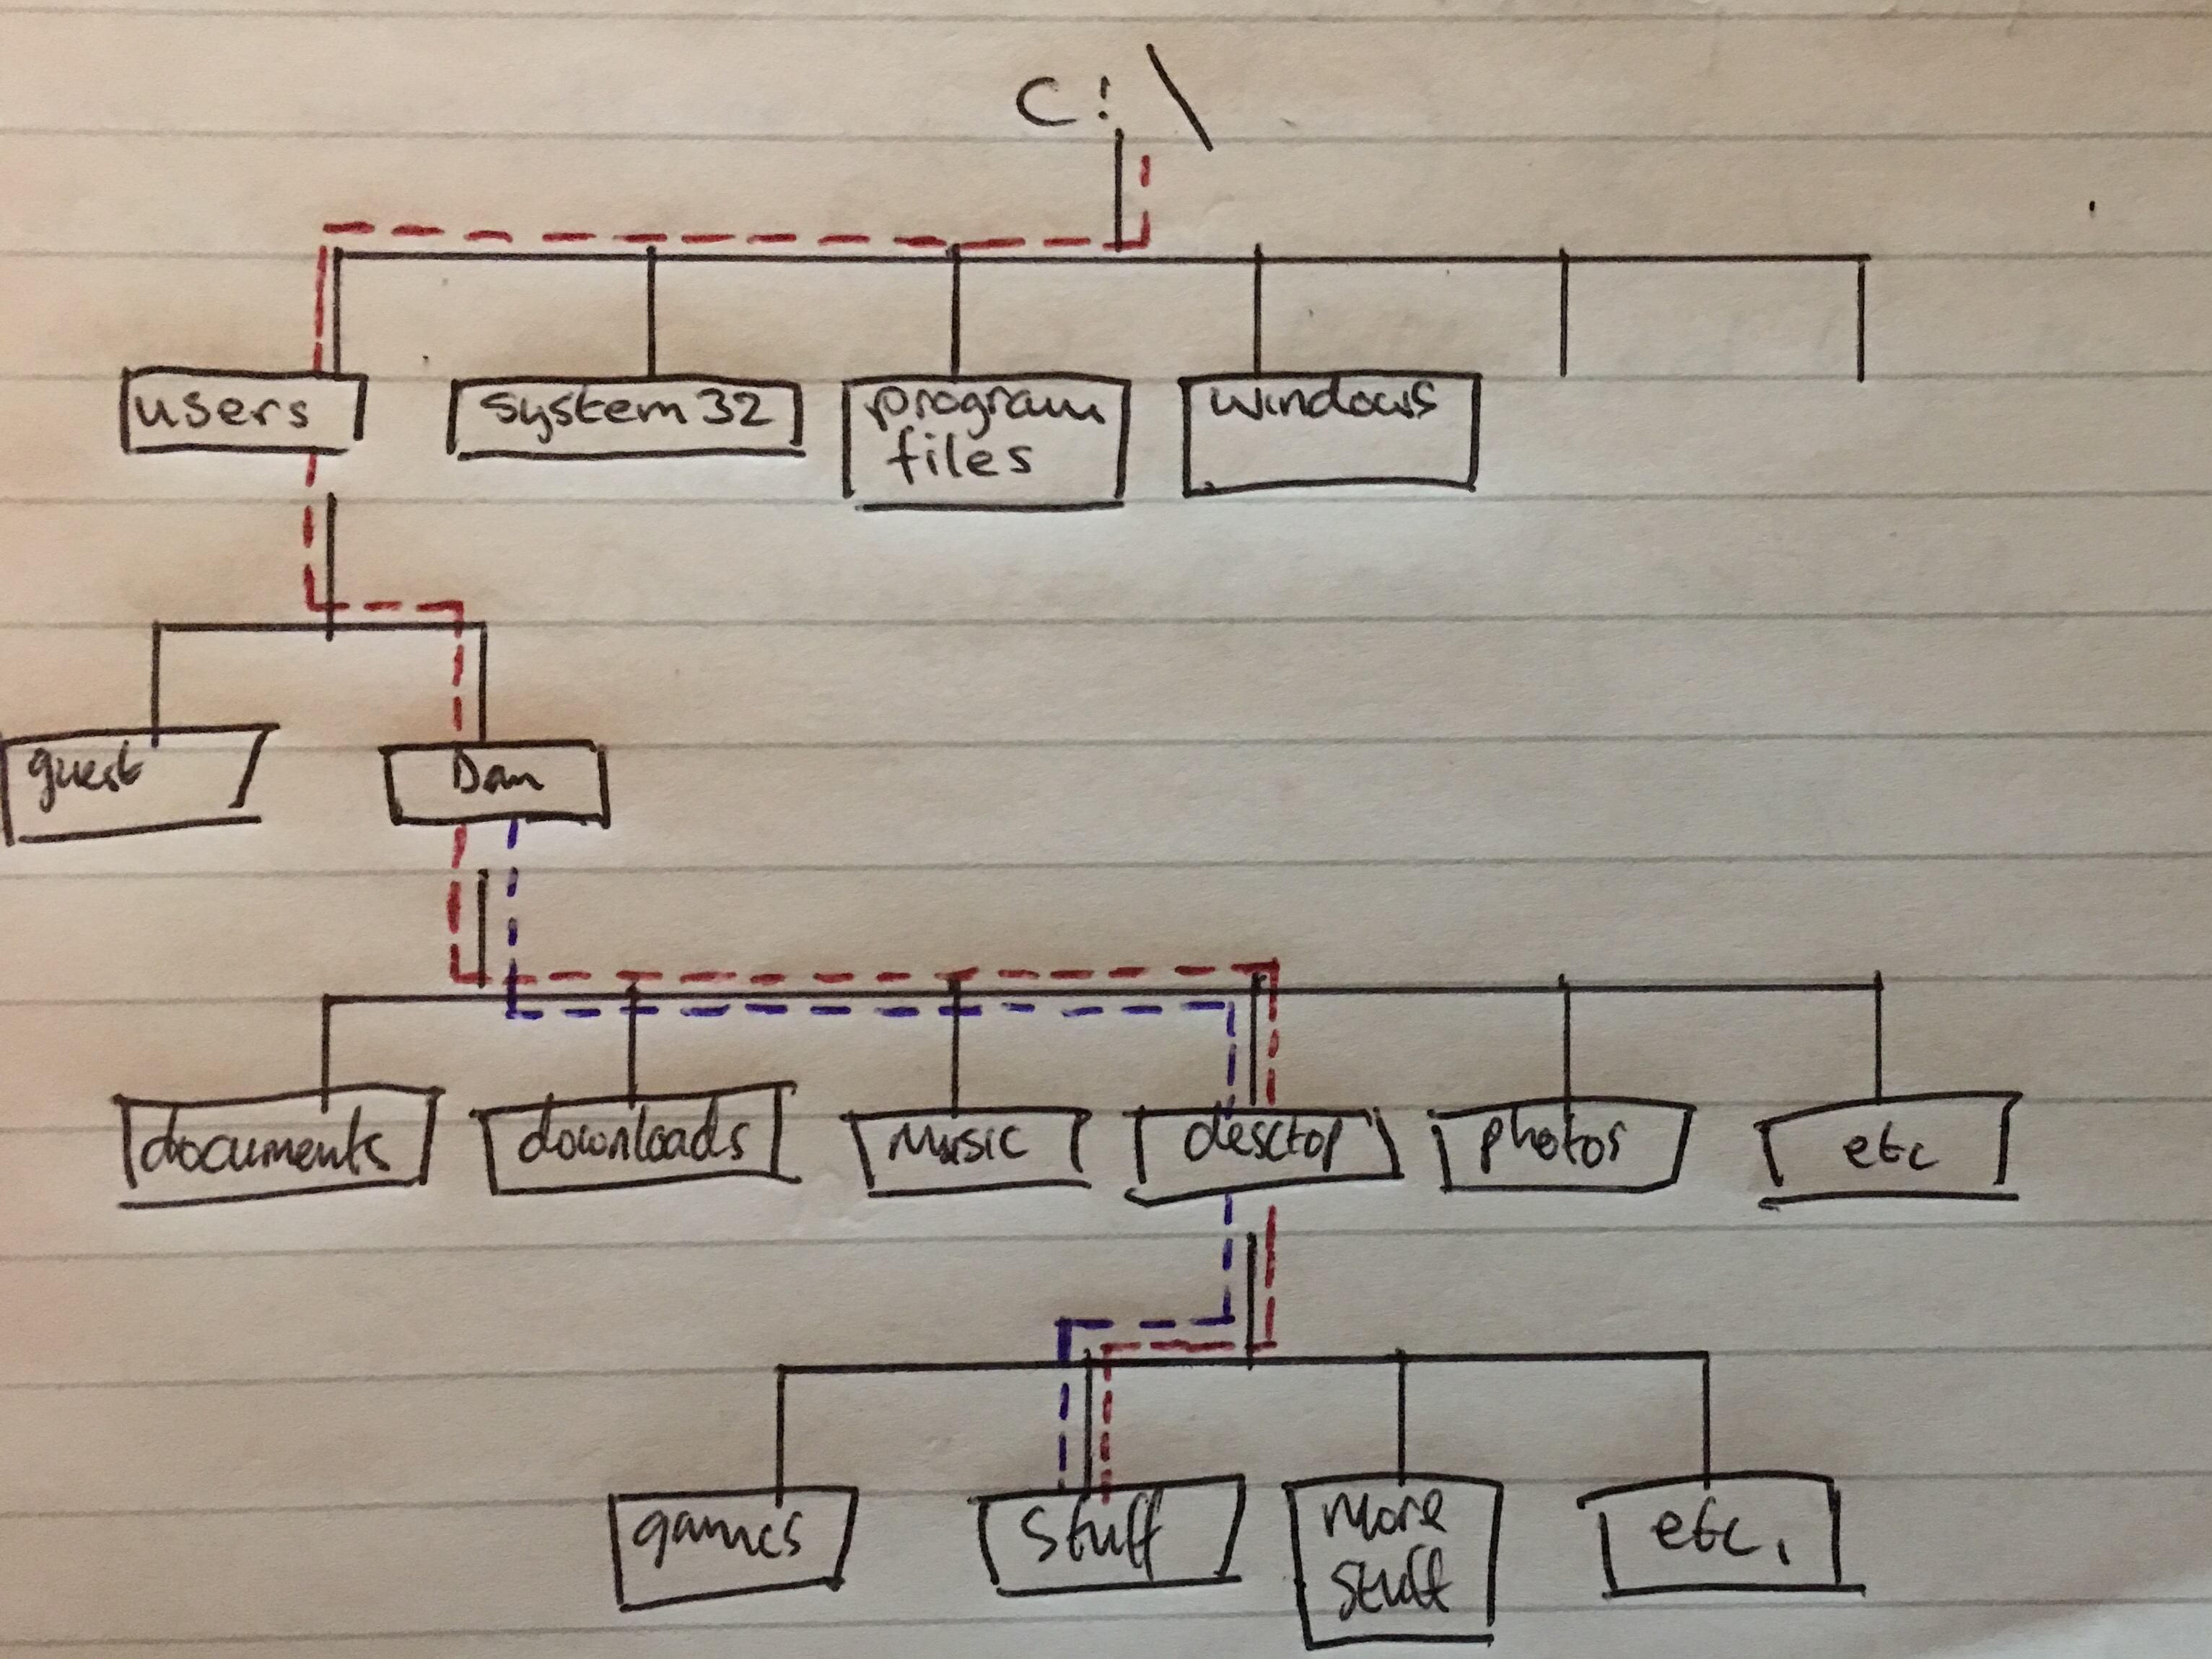 C:\
users
system32
program
files
windows
guest
Dan
documents
downloads
Music
desctop
photos
etc
games
stuff
more
stuff
etc.